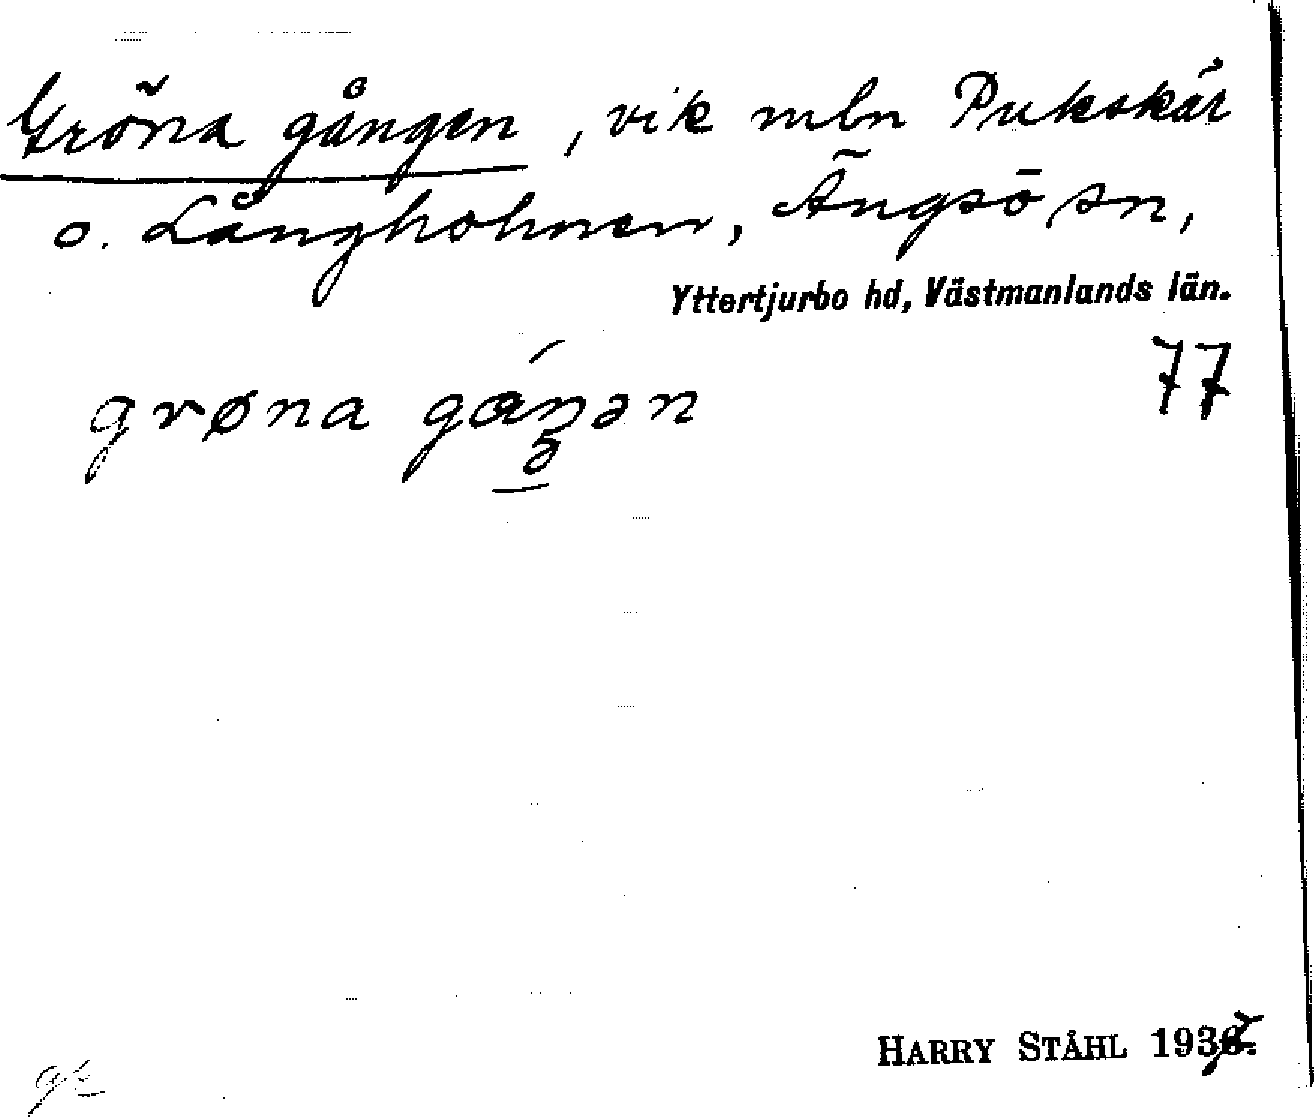 Gröna gången, vik mln Pukskär
o. Långholmen, Ängsö sn,
Yttertjurbo hd, Västmanlands län.
77
grøna gáŋən
HARRY STÅHL 1937.